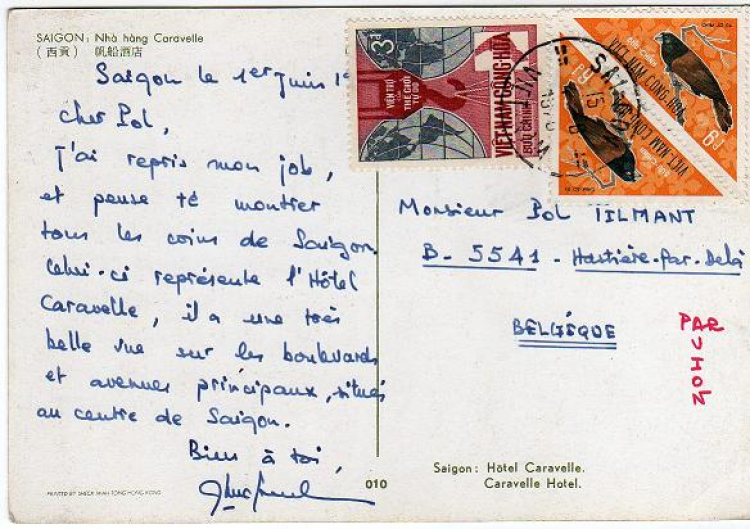 SAIGON: Nhà hàng Caravelle
(西貢) 帆船酒店
Saigon le 1er Juin
cher Pol,
J'ai repris mon job,
et pense te montrer
tous les coins de Saigon.
Celui-ci représente l'Hôtel
Caravelle, il a une très
belle vue sur les boulevards
et avenues principaux, situés
au centre de Saigon.
Bien à toi,
PRINTED BY HONG KONG
010
3đ
VIỆN TRỢ
CỦA
THẾ GIỚI
TỰ DO
VIỆT-NAM CỘNG-HÒA
BƯU CHÍNH
VIỆT-NAM CỘNG-HÒA
6đ
VIỆT-NAM CỘNG-HÒA
6đ
SAIGON
Monsieur Pol TILMANT
B-5541-Hastière-Par-Delà
BELGIQUE
PAR
AVION
Saigon: Hôtel Caravelle.
Caravelle Hotel.